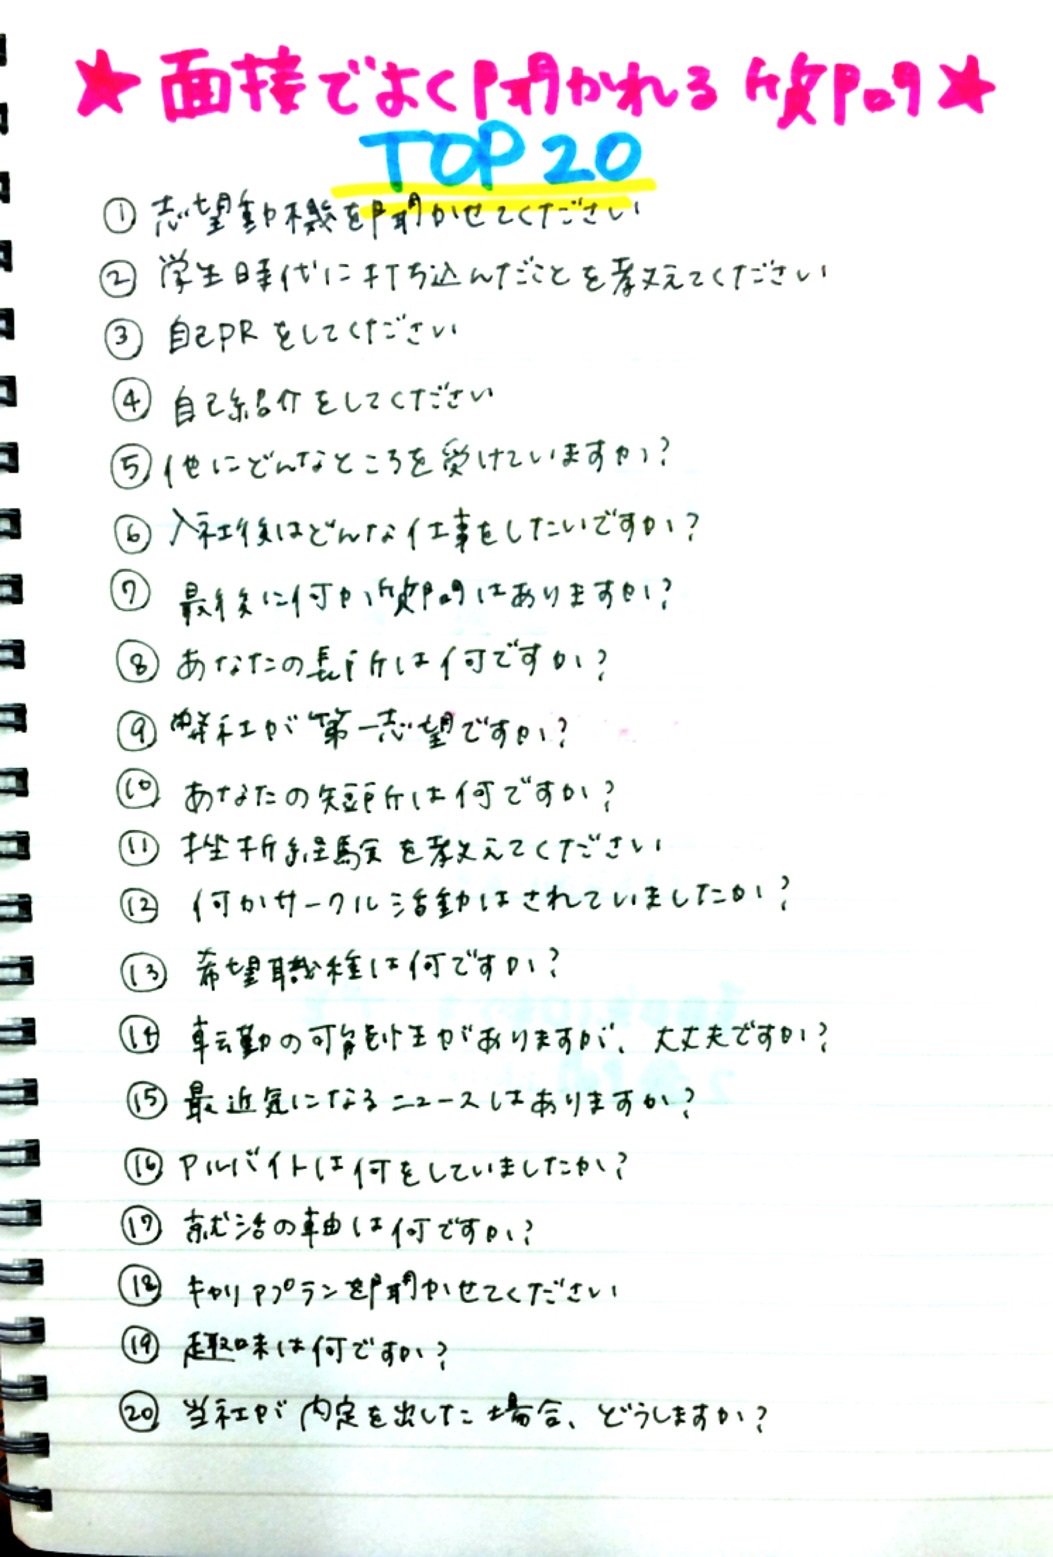 ★面接でよく聞かれる質問★
TOP20
① 志望動機を聞かせてください
② 学生時代に打ち込んだことを教えてください
③ 自己PRをしてください
④ 自己紹介をしてください
⑤ 他にどんなところを受けていますか?
⑥ 入社後はどんな仕事をしたいですか?
⑦ 最後に何か質問はありますか?
⑧ あなたの長所は何ですか?
⑨ 弊社が第一志望ですか?
⑩ あなたの短所は何ですか?
⑪ 挫折経験を教えてください
⑫ 何かサークル活動はされていましたか?
⑬ 希望職種は何ですか?
⑭ 転勤の可能性がありますが、大丈夫ですか?
⑮ 最近気になるニュースはありますか?
⑯ アルバイトは何をしていましたか?
⑰ 就活の軸は何ですか?
⑱ キャリアプランを聞かせてください
⑲ 趣味は何ですか?
⑳ 当社が内定を出した場合、どうしますか?